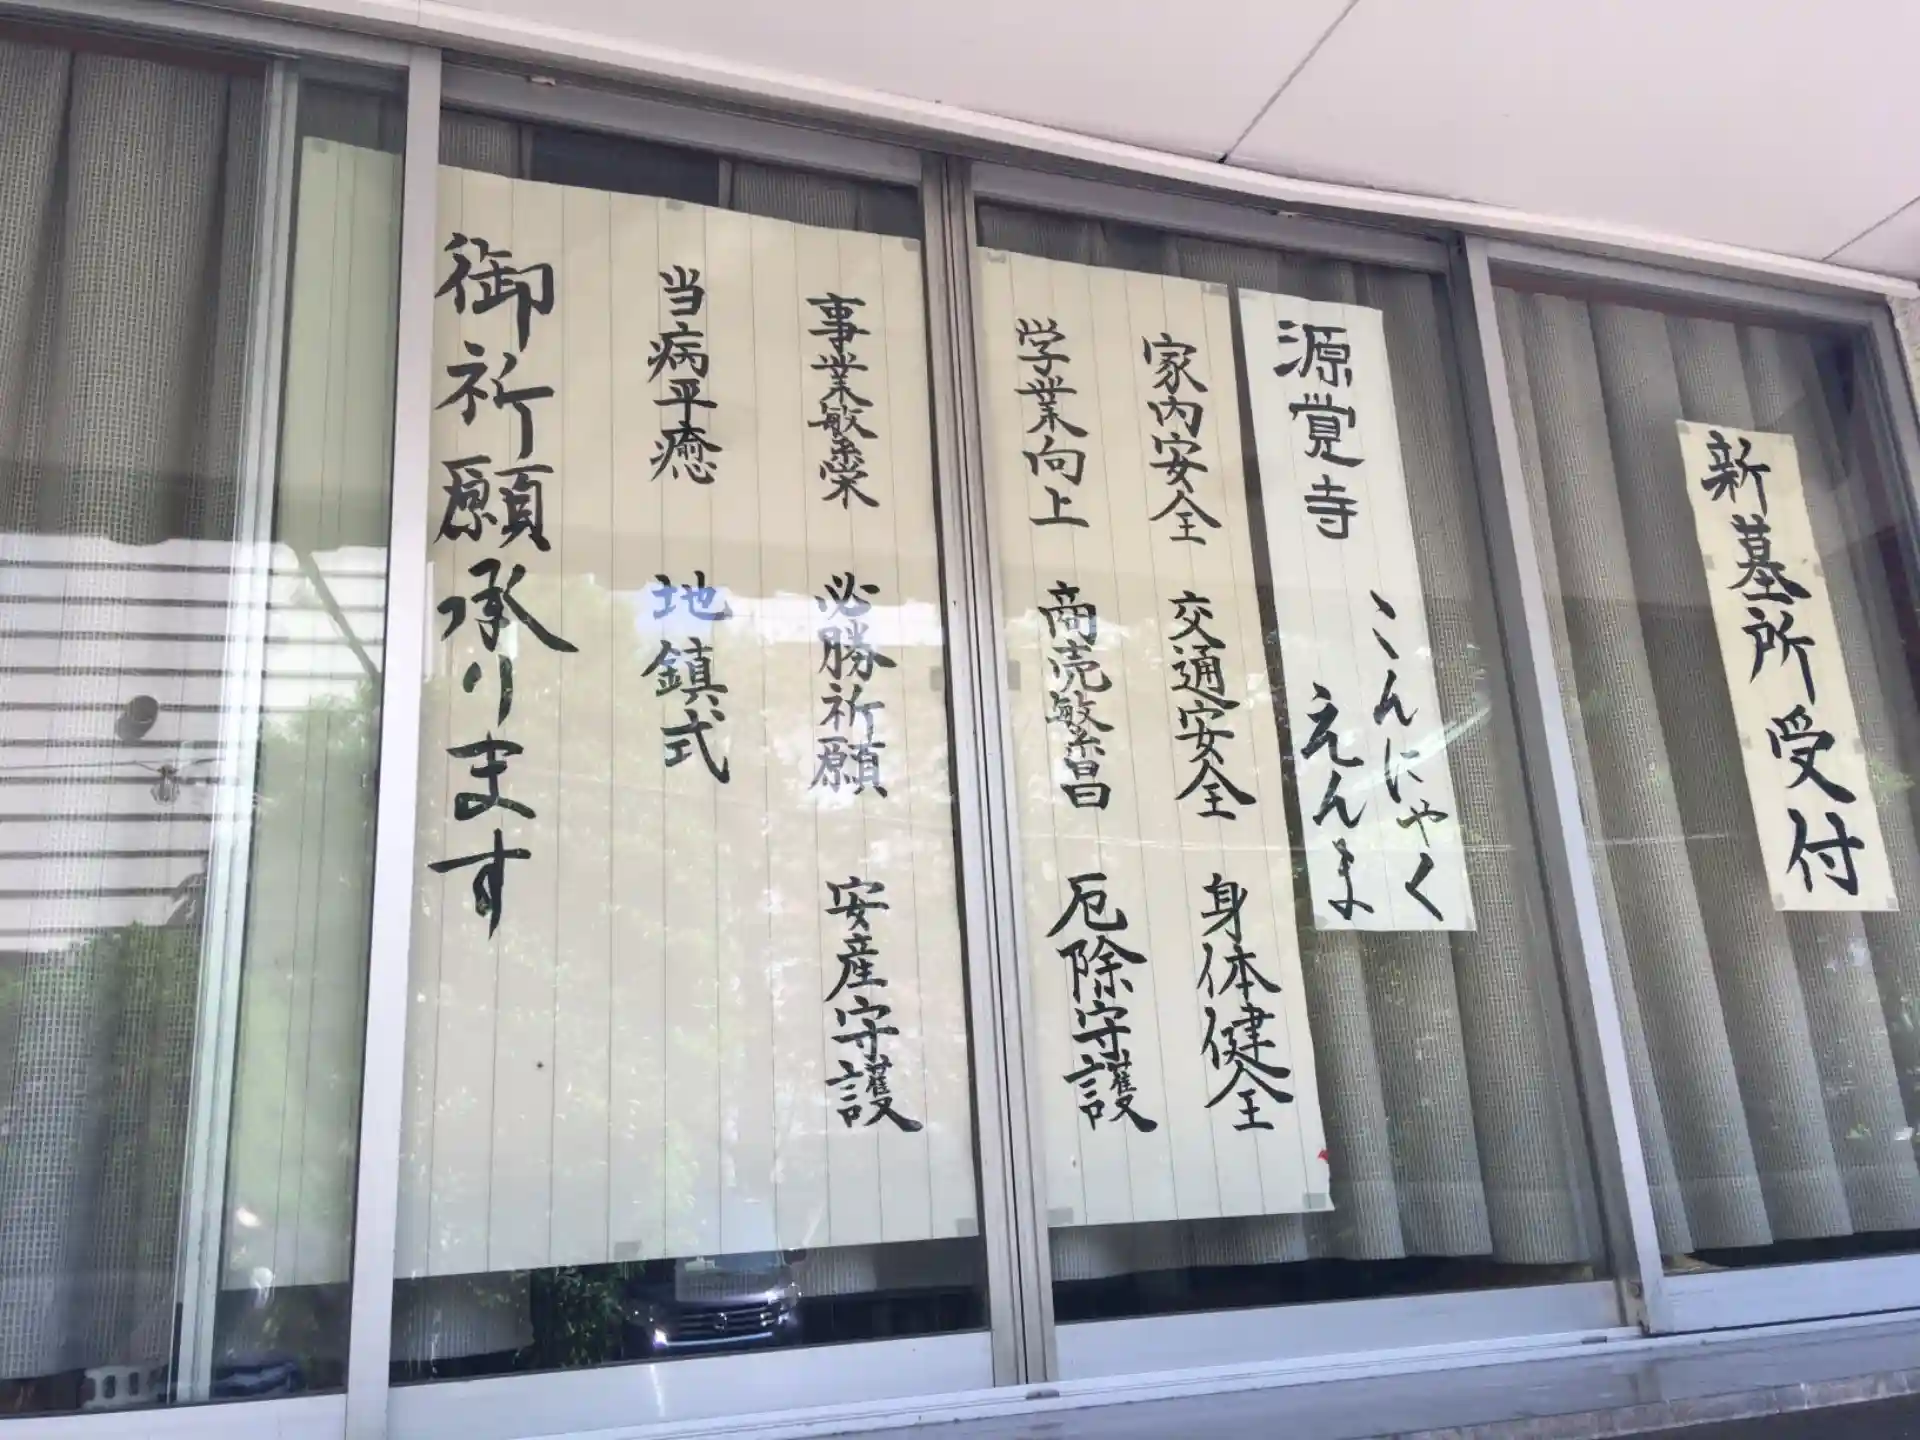 新墓所受付
源覚寺
こんにゃく
えんま
家内安全 交通安全 身体健全
学業向上 商売繁昌 厄除守護
事業繁栄 必勝祈願 安産守護
当病平癒 地鎮式
御祈願承ります